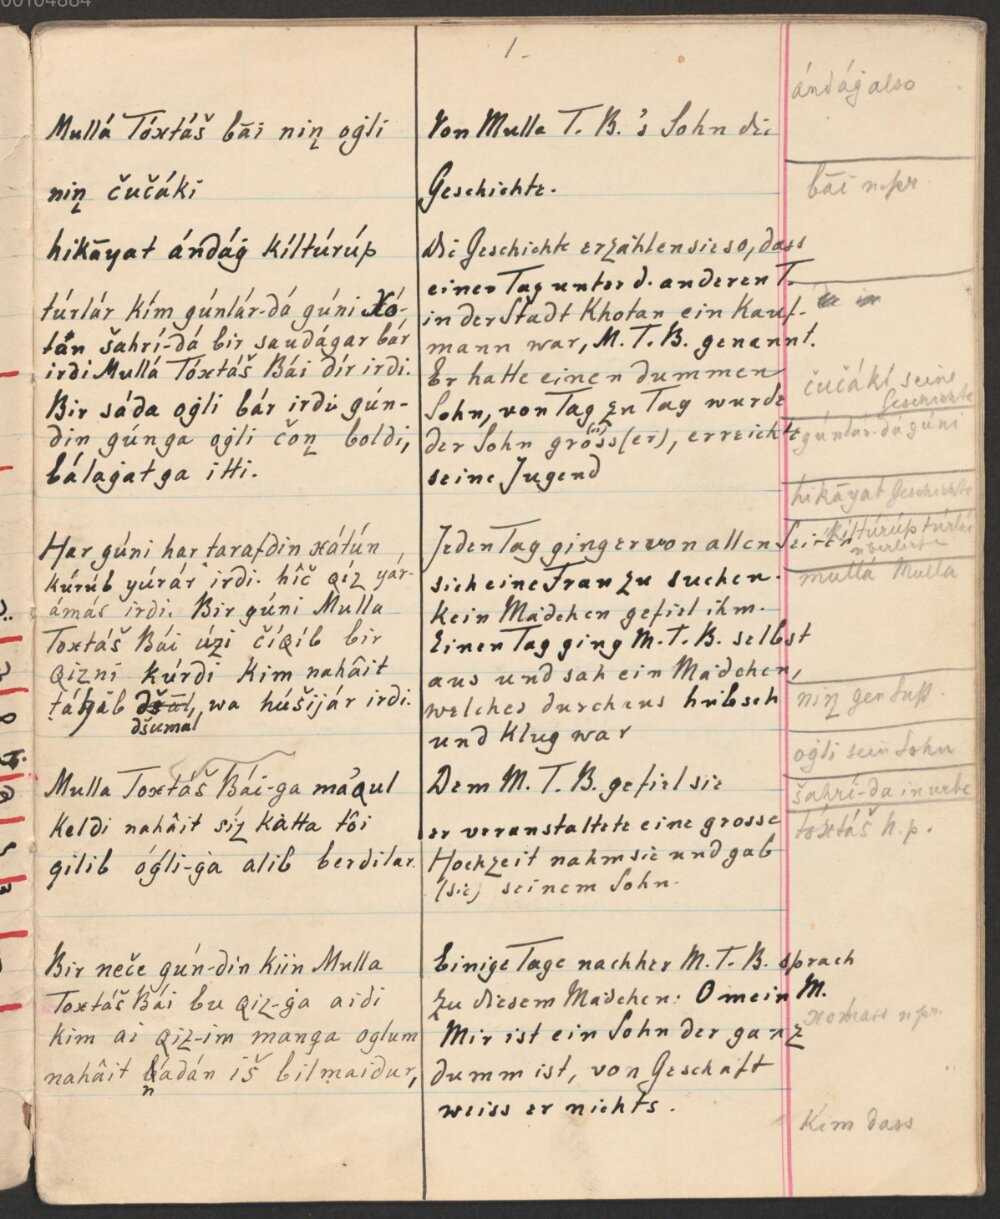 00104884
1.
Mullá Tóxtáš bāi niŋ oġli
niŋ čučáki
hikāyat ándáġ kíltúrúp
túrlár kím gúnlár-dá gúni Xó-
tän šahrí-dá bir saudágar bár
irdi Mullá Tóxtáš Bái dír irdi.
Bir sáda oġli bár irdi gún-
din gúnga oġli čoŋ boldi,
bálaġatga itti.
Har gúni har tarafdin xátún,
kúrúb yúrár irdi. hîč qíz yár-
ámás irdi. Bir gúni Mulla
Toxtáš Bái úzi číqíb bir
qizni kúrdi kim nahâit
wa húšijár irdi.
džumal
Mulla Toxtáš Bái-ga ma'qul
keldi nahâit síz katta tôi
qilib óġli-ġa alib berdilar.
Bir neče gún-din kiin Mulla
Toxtáš Bái bu qiz-ġa aidi
kim ai qiz-im manga oglum
nahâit nádán iš bilmaidur,
Von Mulla T. B.'s Sohn die
Geschichte.
Die Geschichte erzählen sie so, dass
einen Tag unter d. anderen T.
in der Stadt Khotan ein Kauf-
mann war, M. T. B. genannt.
Er hatte einen dummen
Sohn, von Tag zu Tag wurde
der Sohn gröss(er), erreichte
seine Jugend
Jeden Tag ging er von allen Seiten
sich eine Frau zu suchen.
Kein Mädchen gefiel ihm.
Einen Tag ging M. T. B. selbst
aus und sah ein Mädchen,
welches durchaus hübsch
und klug war
Dem M. T. B. gefiel sie
er veranstaltete eine grosse
Hochzeit nahm sie und gab
(sie) seinem Sohn.
Einige Tage nachher M. T. B. sprach
zu diesem Mädchen: O mein M.
Mir ist ein Sohn der ganz
dumm ist, von Geschäft
weiss er nichts.
ándáġ also
bāi n.pr.
čučáki, seine
Geschichte
gúnlár-da gúni
hikāyat Geschichte
kíltúrúp túrlár
mullá Mulla
niŋ gen Suff.
oġli sein Sohn
šahrí-da in urbe
tóxtáš n.p.
n pr.
Kim dass